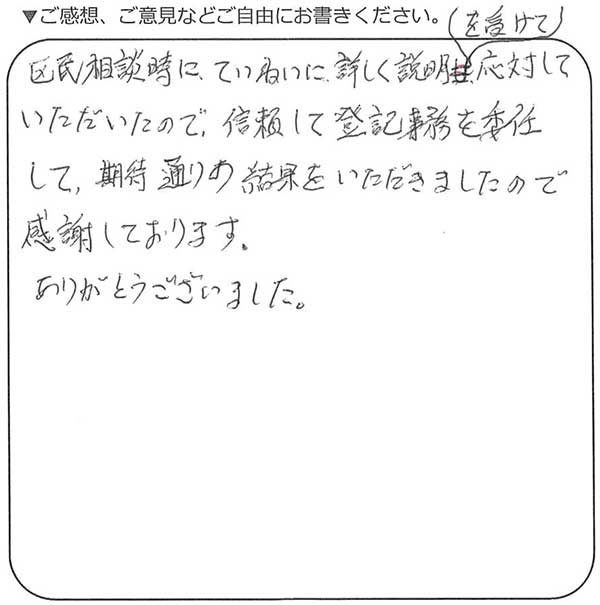 ▼ご感想、ご意見などご自由にお書きください。
(を受けて)
区民相談時に、ていねいに、詳しく説明 応対して
いただいたので、信頼して登記事務を委任
して、期待通りの結果をいただきましたので
感謝しております。
ありがとうございました。